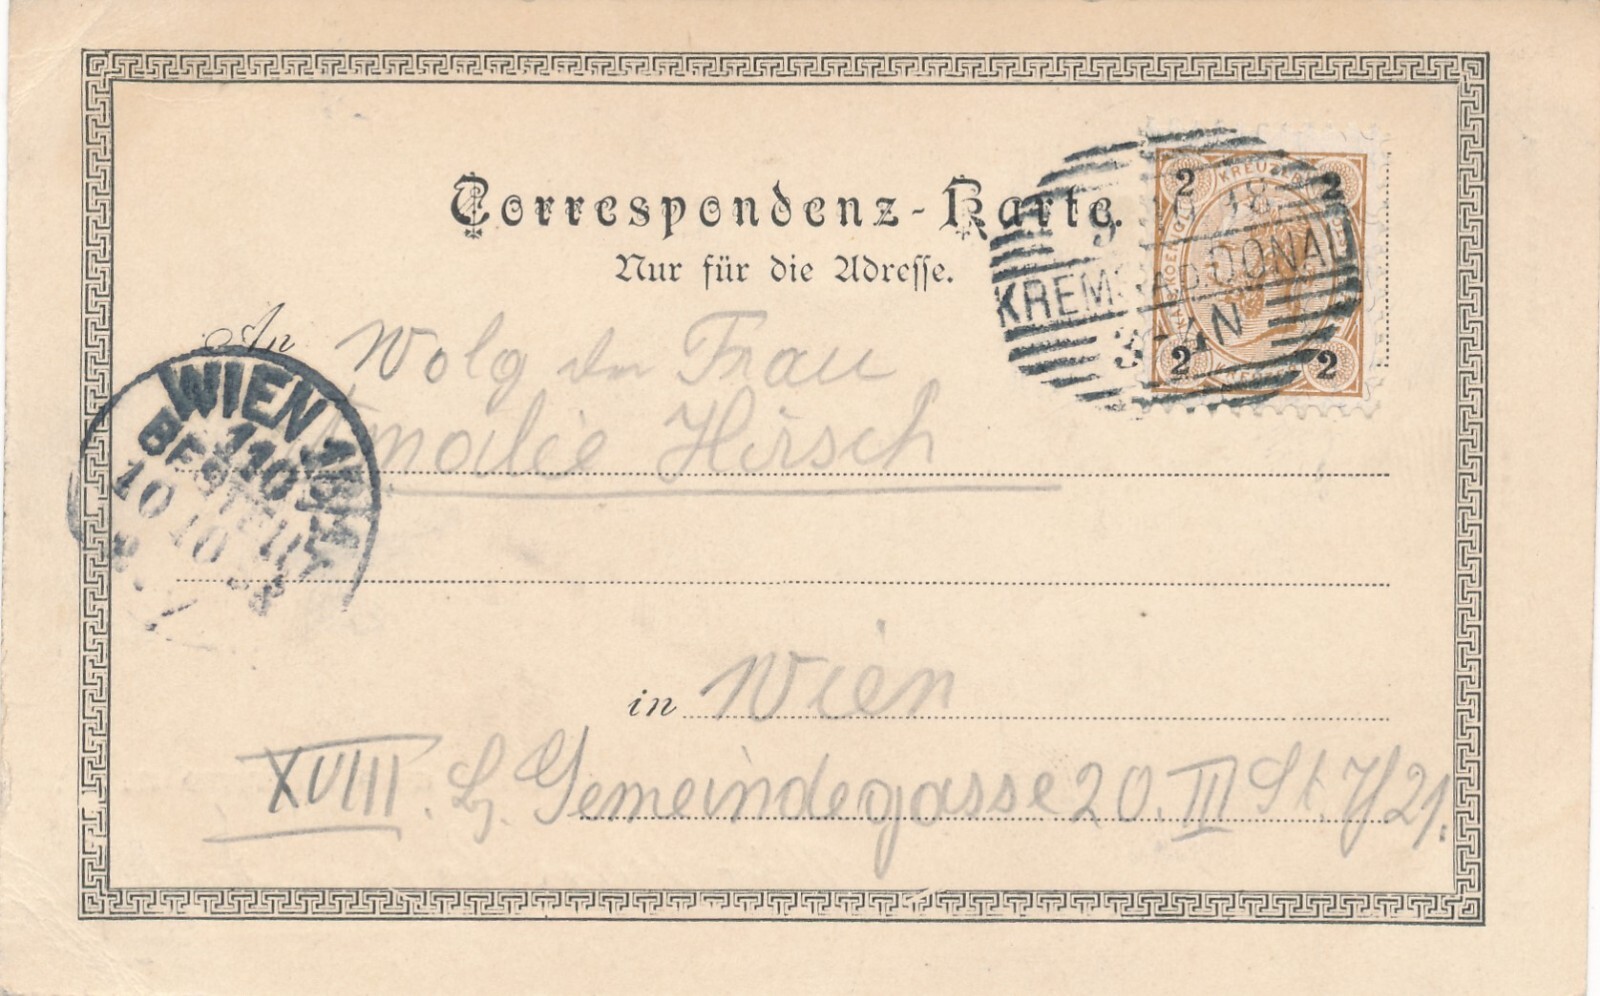 Correspondenz-Karte.
Nur für die Adresse.
2 KREUZER 2
KREMS A.D. DONAU
3-4 N
2 2
An Wolg der Frau
Amalie Hirsch
WIEN 18/1
110
BESTELLT
10 10
in Wien
XVIII. Bz. Gemeindegasse 20. III St. T 21.